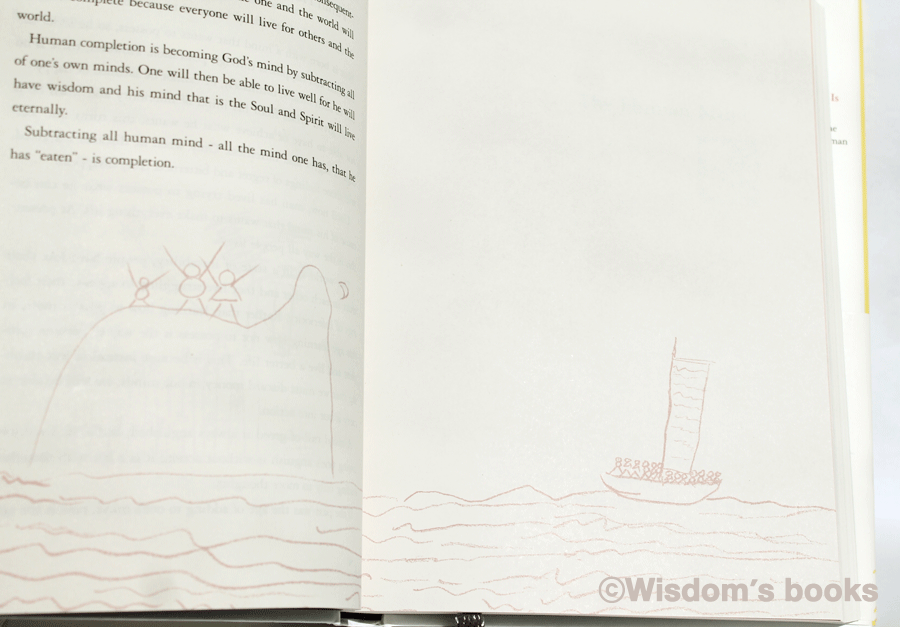 one and the world will
because everyone will live for others and the
world.
Human completion is becoming God's mind by subtracting all
of one's own minds. One will then be able to live well for he will
have wisdom and his mind that is the Soul and Spirit will live
eternally.
Subtracting all human mind - all the mind one has, that he
has "eaten" - is completion.
©Wisdom's books